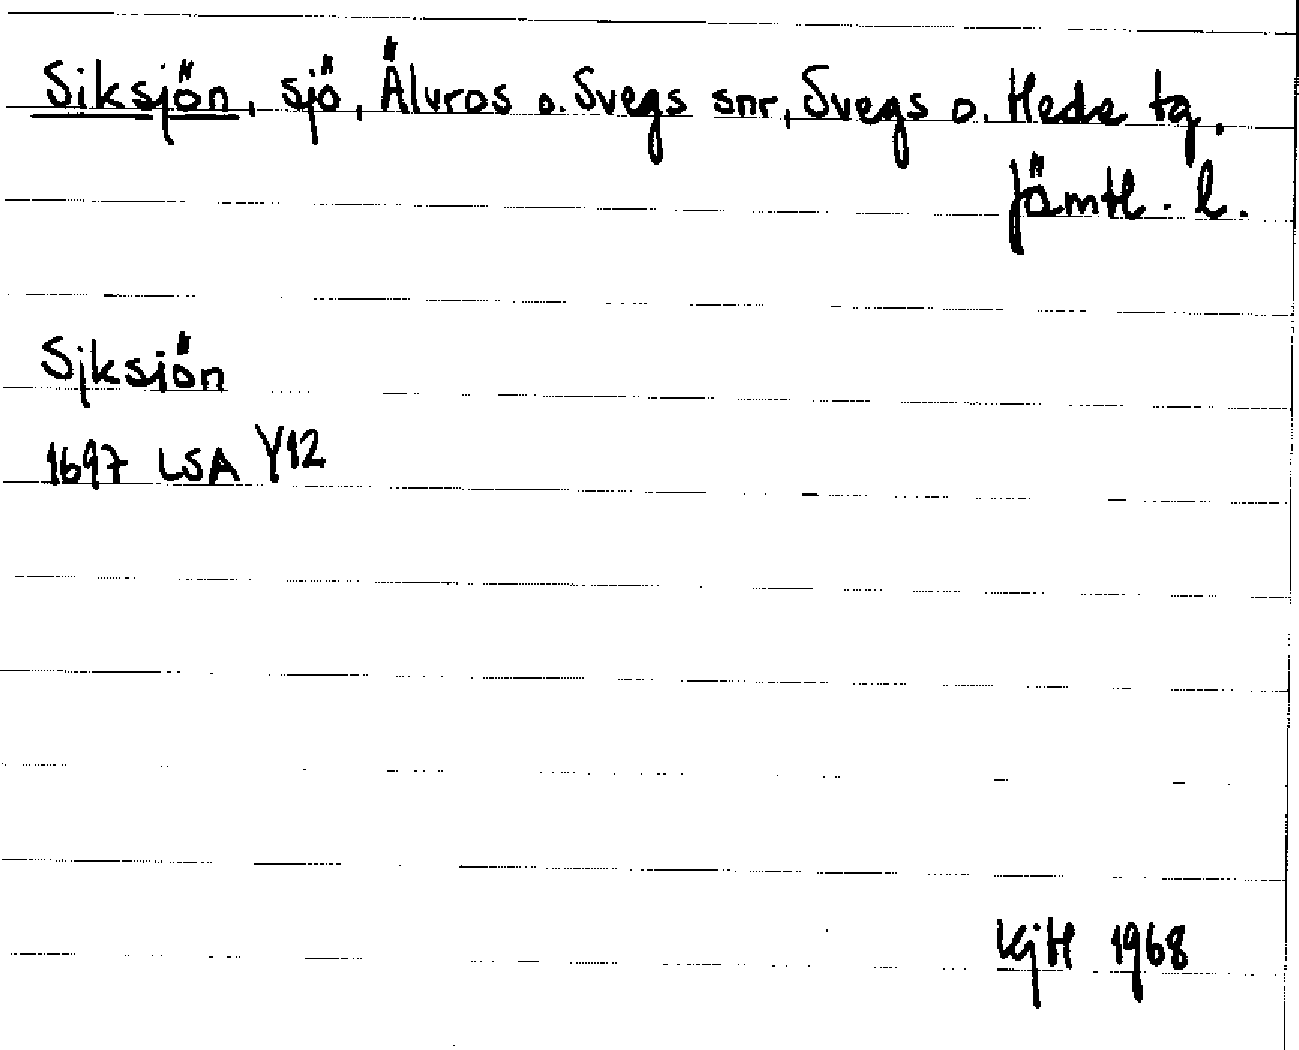 Siksjön, sjö, Älvros o. Svegs snr, Svegs o. Heds tg.
Jämtl. l.
Sjksiön
1697 LSA Y12
KjH 1968